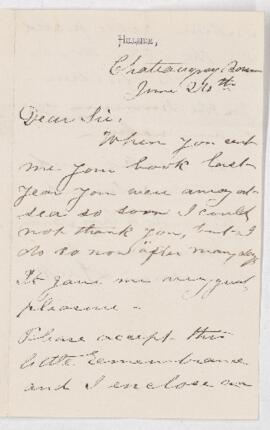 Chateaugay
June 24th
Dear Sir,
When you sent
me your book last
year you were away at
sea so soon I could
not thank you, but I
do so now "after many days
It gave me very great
pleasure -
Please accept this
little remembrance
and I enclose an